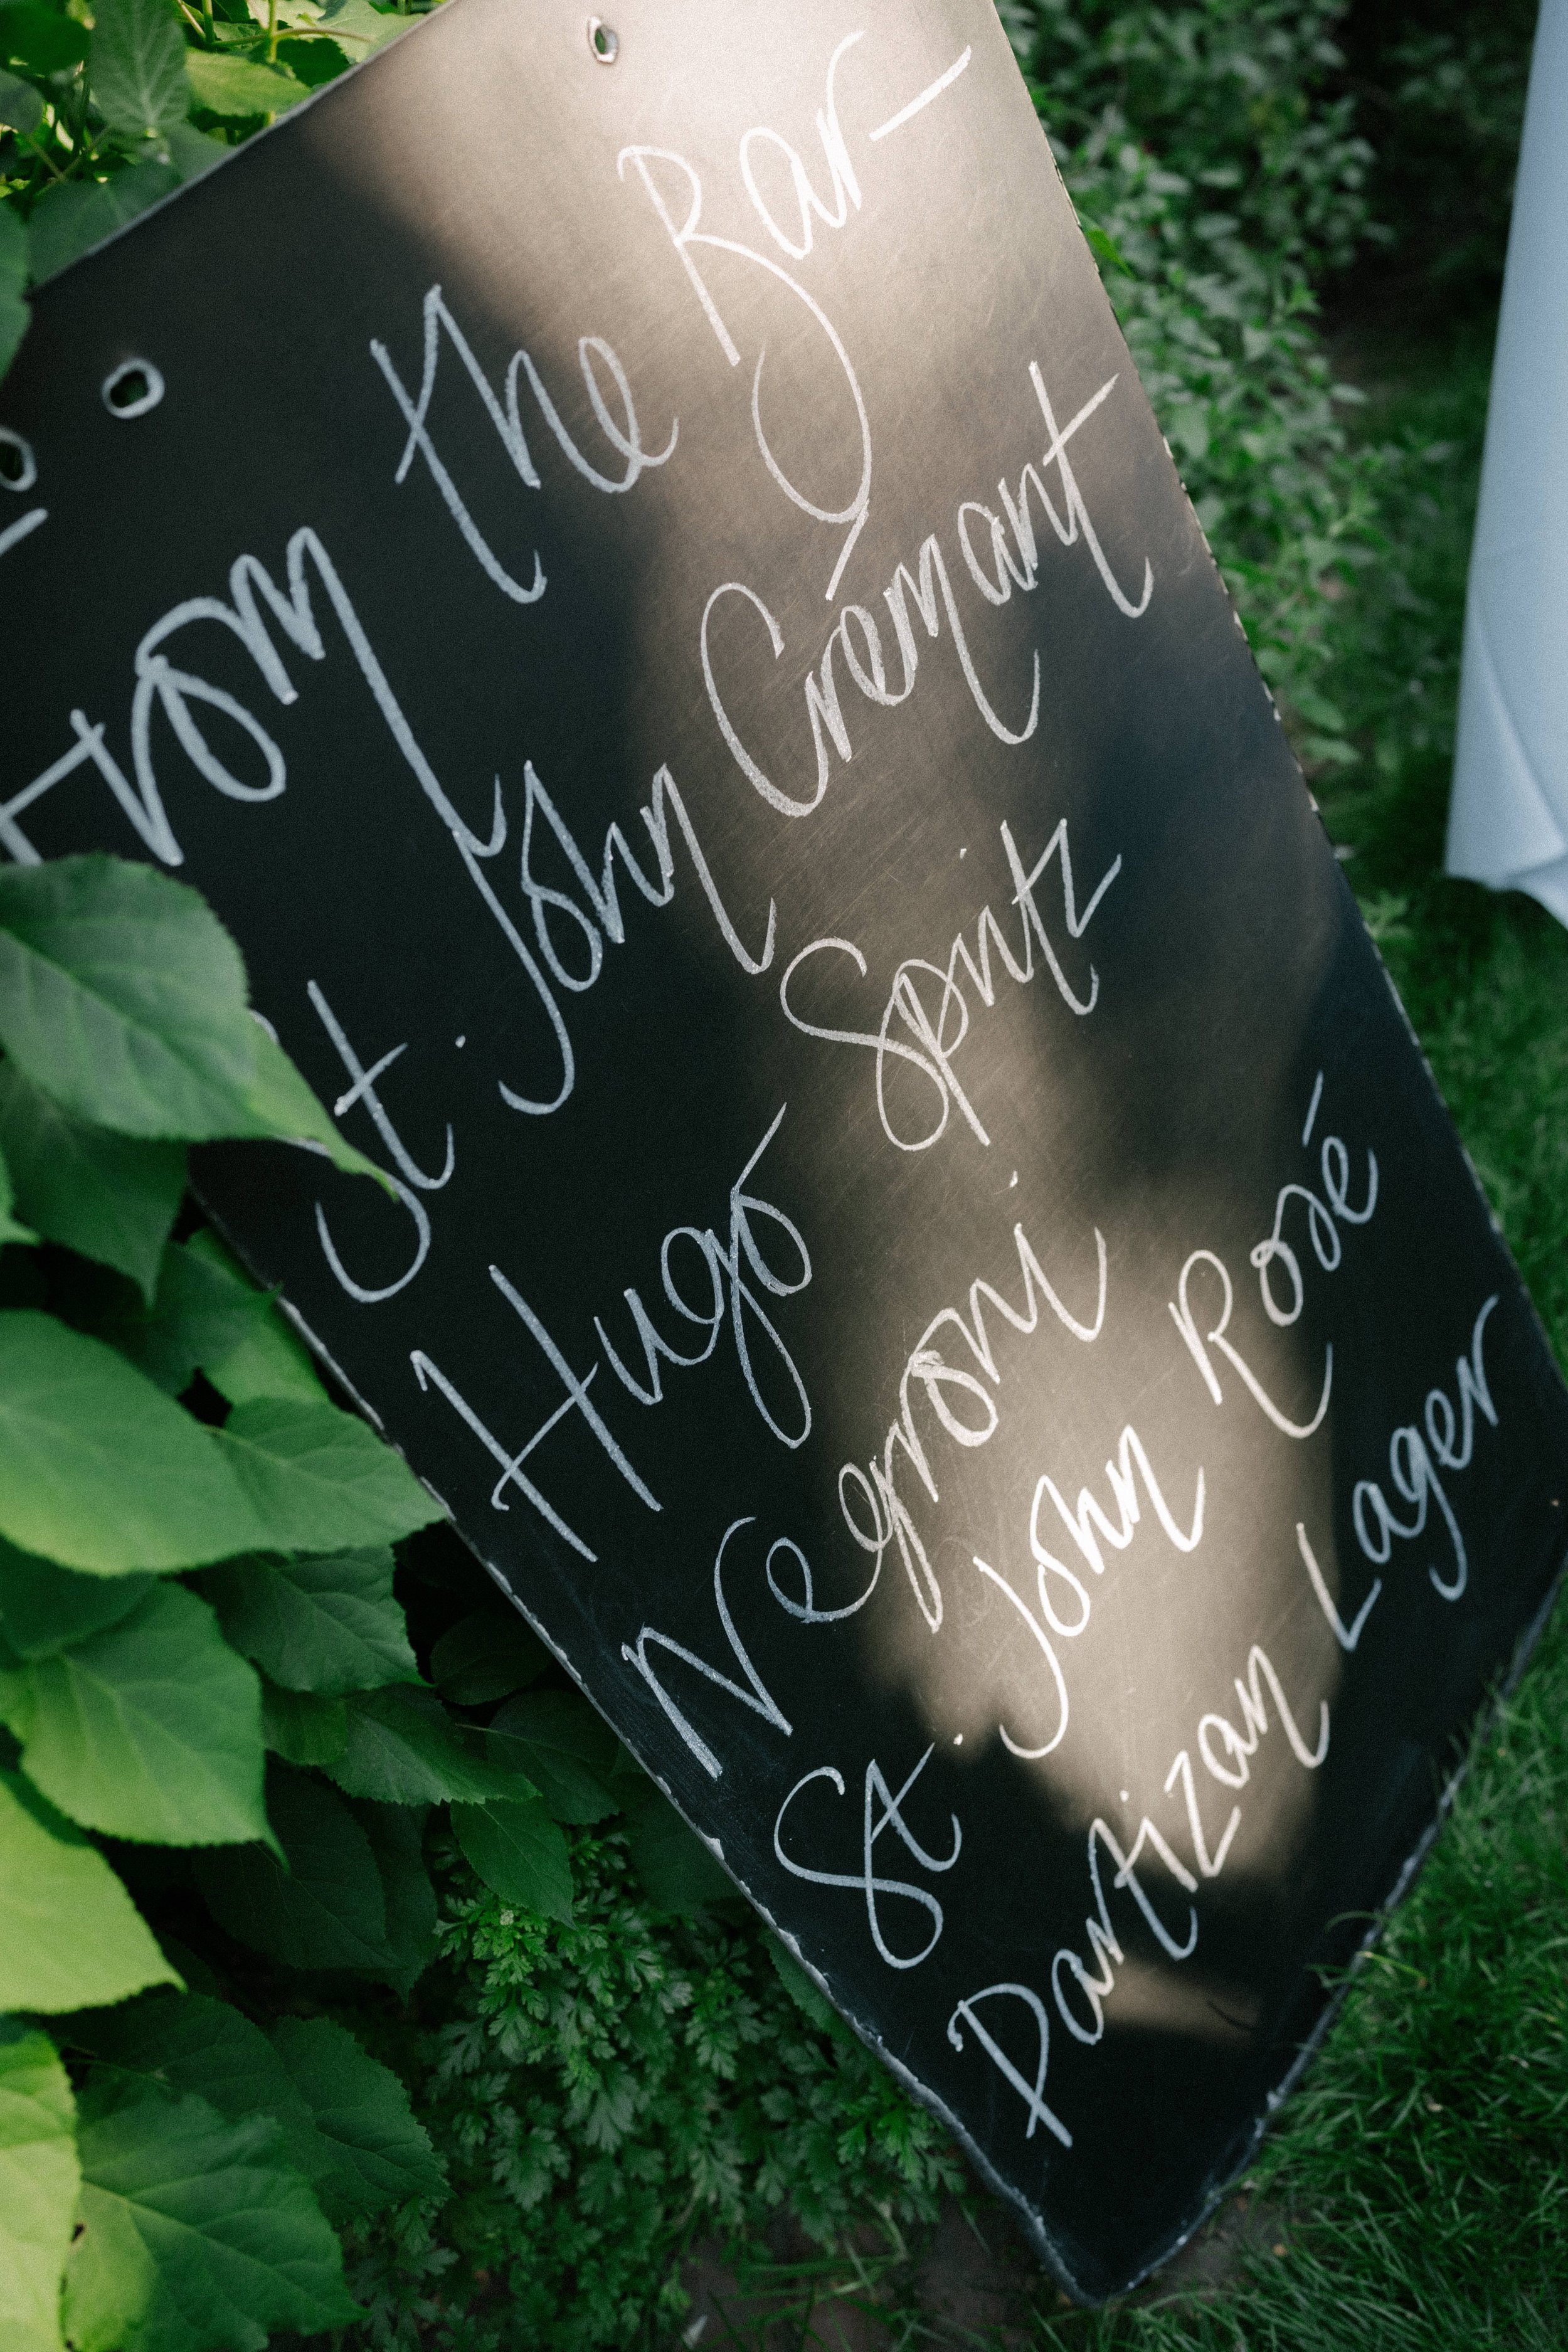 From the Bar-
St. John Crémant
Hugo Spritz
Negroni
St. John Rosé
Partizan Lager